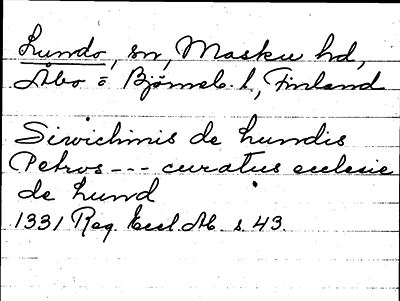 Lundo, sn, Masku hd,
Åbo = Björneb. l., Finland
Sirvichinis de Lundis
Petrus --- curatus ecclesie
de Lund
1331 Reg. Eccl. Ab. s. 43.